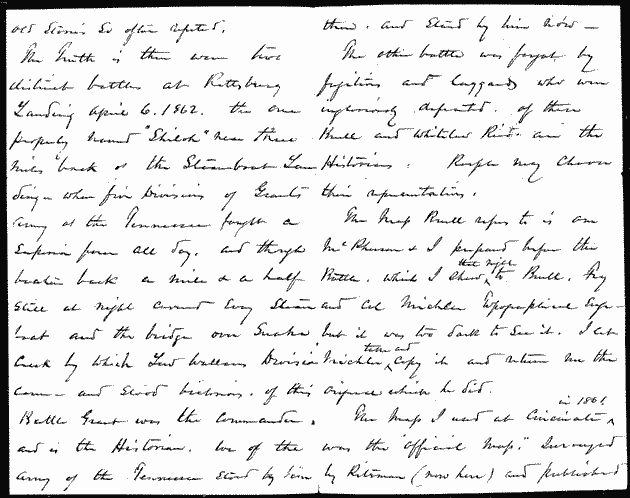 old Stories so often refuted.
The Truth is there were two
distinct battles at Pittsburg
Landing April 6. 1862. the one
properly named "Shiloh" near three
miles back of the Steamboat Lan
ding when five Divisions of Grants
Army of the Tennessee fought a
Superior force all day. and though
beaten back a mile & a half
still at night covered Every Steam
boat and the bridge over Snake
Creek by which Lew Wallaces Division
came and stood victorious. of this
Battle Grant was the Commander.
and is the Historian. We of the
Army of the Tennessee stood by him
then. and Stand by him now —
The other battle was fought by
fugitives and laggards who were
ingloriously defeated. of these
Buell and Whitelaw Reid are the
Historians. People may choose
their representatives.
The Map Buell refers to is one
McPherson & I prepared before the
Battle. which I showed that night to Buell.
and Col Michler Topographical Engr
but it was too dark to See it. I let
Michler take and Copy it and return me the
original which he did.
The Map I used at Cincinnati in 1861
was the "official Map." Surveyed
by Pitzman (now here) and published